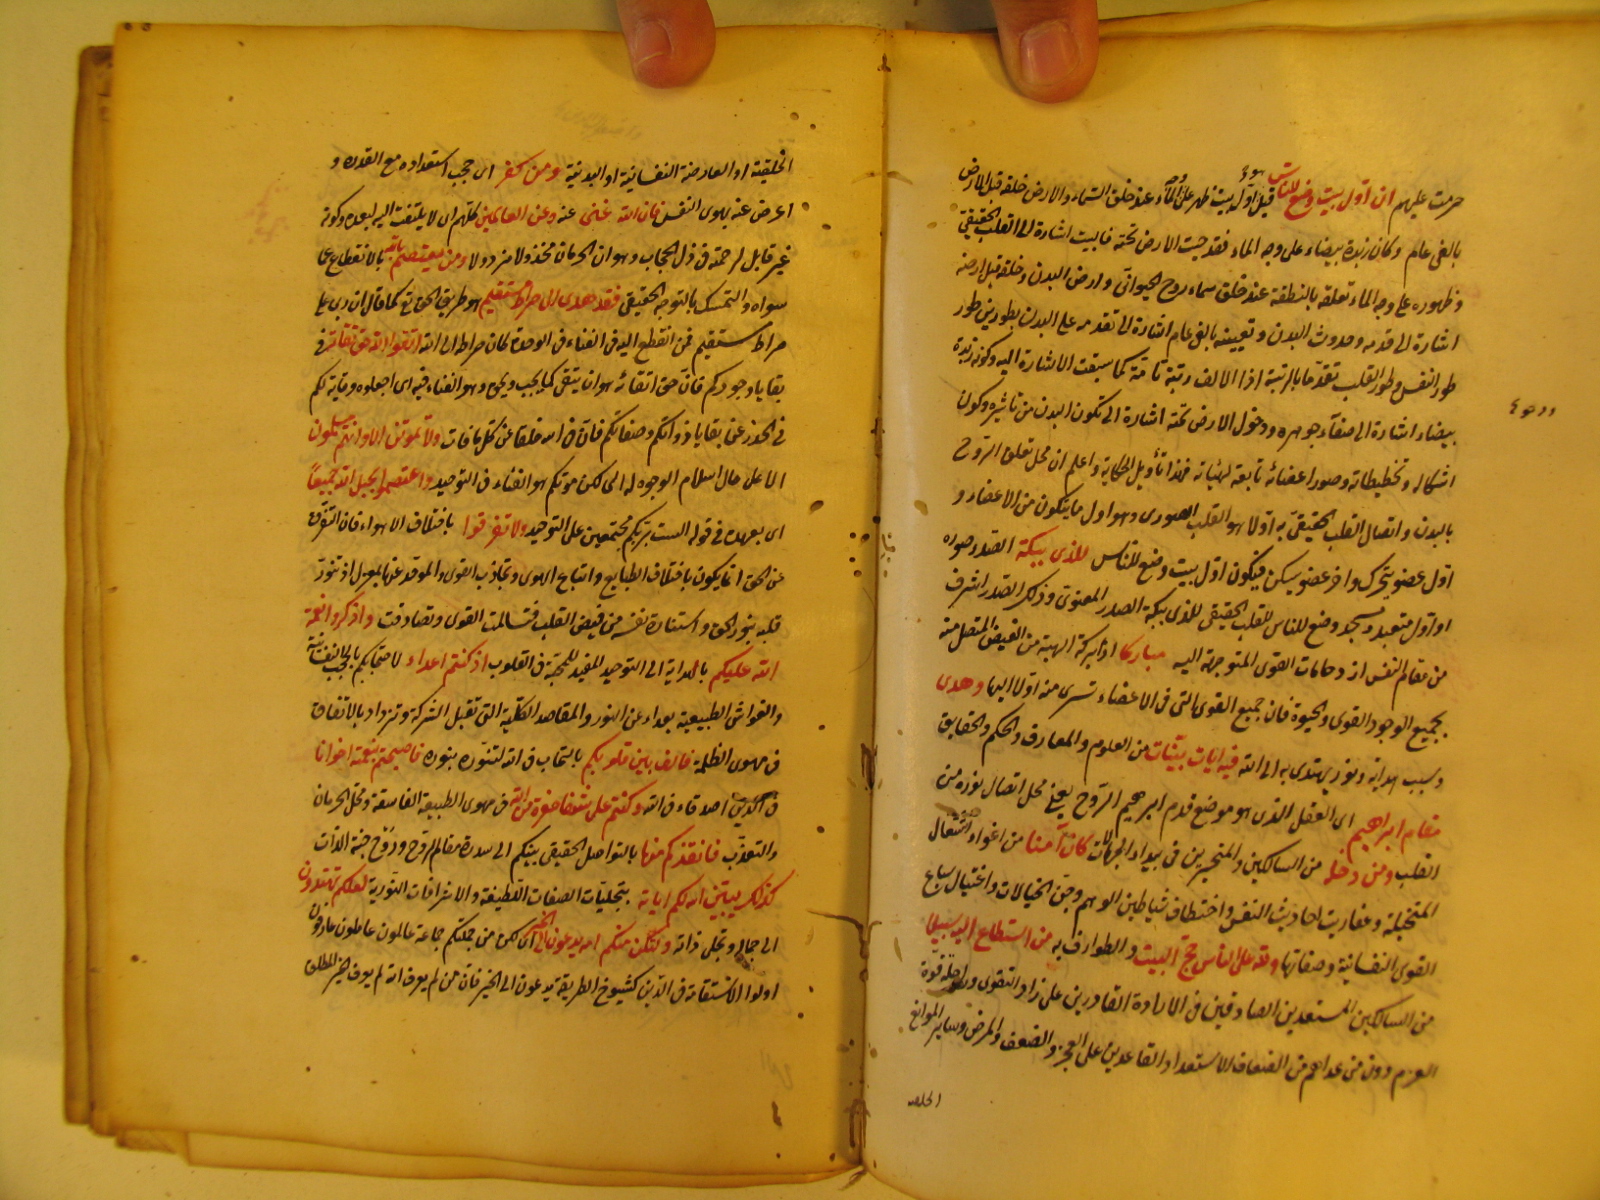 حرمت عليهم ان اول بيت وضع للناس قيل هو اول بيت ظهر على وجه الماء عند خلق السماء والارض خلقه قبل الارض
بالفى عام وكان زبدة بيضاء على وجه الماء فدحيت الارض تحته فالبيت اشارة الى القلب الحقيقى
وظهوره على وجه الماء تعلقه بالنطفة عند خلق سماء روح الحيوانى وارض البدن وخلقه قبل ارضه
اشارة الى قدمه وحدوث البدن وتعيينه بالفى عام اشارة الى تقدمه على البدن بطورين طور
طور النفس وطور القلب تقدما بالرتبة اذ الالف رتبة تامة كما سبقت الاشارة اليه وكونه زبدة
بيضاء اشارة الى صفاء جوهره ودحول الارض تحته اشارة الى تكون البدن من تاثيره وكون
اشكاله وتخطيطاته وصور اعضائه تابعة لهيئاته فهذا تأويل الحكاية واعلم ان محل تعلق الروح
بالبدن واتصال القلب الحقيقى به اولا هو القلب الصورى وهو اول ما يتكون من الاعضاء و
اول عضو يتحرك واخر عضو يسكن فيكون اول بيت وضع للناس للذى ببكة الصدر صورة
او اول متعبد ومسجد وضع للناس للقلب الحقيقى للذى ببكة الصدر المعنوى وذلك الصدر اشرف
من مقام النفس ازدحامات القوى المتوجهة اليه مباركا اذا بركة الهية من الفيض المتصل منه
بجميع الوجود القوى والحيوة فان جميع القوى التى فى الاعضاء تسرى منه اولا اليها وهدى
وسبب هداية ونور يهتدى به الى الله فيه ايات بينات من العلوم والمعارف والحكم والحقايق
مقام ابراهيم اى العقل الذى هو موضع قدم ابراهيم الروح يعنى محل اتصال نوره من
القلب ومن دخله من السالكين والمتحيرين فى بيداء الجهالات كان آمنا من اغواء سعالى
المتخيلة وعفاريت احاديث النفس واختطاف شياطين الوهم وجن الخيالات واغتيال سباع
القوى النفسانية وصفاتها ولله على الناس حج البيت والطوارف به من استطاع اليه سبيلا
من السالكين المستعدين الصادقين فى الارادة القادرين على زاد التقوى وراحلة قوة
العزم دون من عداهم من الضعاف الاستعداد القاعدين على العجز والضعف والمرض وساير الموانع
الخلقية
الخلقية او العارضة النفسانية او البدنية ومن كفر اى حجب استعداده مع القدرة و
اعرض عنه بهوى النفس فان الله غنى عنه وعن العالمين كلهم اى لا يلتفت اليه لبعده وكونه
غير قابل لرحمته فى ذل الحجاب وهوان الحرمان مخذولا مردولا ومن يعتصم بالله بالانقطاع عما
سواه والتمسك بالتوجه الحقيقى فقد هدى الى صراط مستقيم هو طريق الحق تع كما قال ان ربى على
صراط مستقيم فمن انقطع اليه فى الفناء فى الوحدة كان صراطه الى الله اتقوا الله حق تقاته فى
بقايا وجودكم فان حق اتقائه هو ان يتقى كما يجب ويحق وهو الفناء فيه اى اجعلوه وقاية لكم
فى الحذر عن بقايا ذواتكم وصفاتكم فان فى الله خلفا عن كل ما فات ولا تموتن الا وانتم مسلمون
الا على حال اسلام الوجوه له اى لكن موتكم هو الفناء فى التوحيد واعتصموا بحبل الله جميعا
اى بعهده فى قوله الست بربكم مجتمعين على التوحيد ولا تفرقوا باختلاف الاهواء فان التفرق
عن الحق انما يكون باختلاف الطبايع واتباع الهوى وتجاذب القوى والموحد عنها بمعزل اذ تنور
قلبه بنور الحق واستفادة نفسه من فيض القلب فتسالمت القوى وتصادقت واذكروا نعمة
الله عليكم بالهداية الى التوحيد المفيد للمحبة فى القلوب اذ كنتم اعداء لاحتجابكم بالحجب النفسانية
والغواشى الطبيعية بعداء عن النور والمقاصد الكلية التى تقبل الشركة وتزداد بالاتفاق
فى مهوى الظلمة فالف بين قلوبكم بالتحاب فى الله لتنوره بنوره فاصبحتم بنعمته اخوانا
فى الدين اصدقاء فى الله وكنتم على شفا حفرة من النار فى مهوى الطبيعة الفاسقة ومحل الحرمان
والتعذب فانقذكم منها بالتواصل الحقيقى بينكم الى سدرة مقام الروح وروح جنة الذات
كذلك يبين الله لكم اياته بتجليات الصفات اللطيفة والاشراقات النورية لعلكم تهتدون
الى جماله وتجلى ذاته ولتكن منكم امة يدعون الى الخير اى لكن من جملتكم جماعة عالمون عاملون عارفون
اولوا الاستقامة فى الدين كشيوخ الطريقة يدعون الى الخير فان من لم يعرف الله لم يعرف الخير المطلق